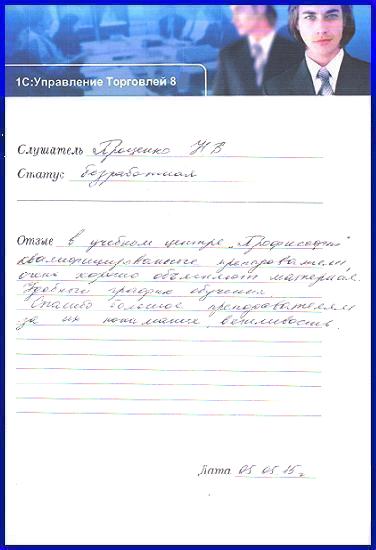 1С:Управление Торговлей 8
Слушатель Проценко Н В
Статус безработная
Отзыв в учебном центре „Профисофт"
квалифицированные преподаватели,
очень хорошо объясняют материал.
Удобный график обучения.
Спасибо большое преподавателям
за их понимание, вежливость.
Дата 05.05.15г